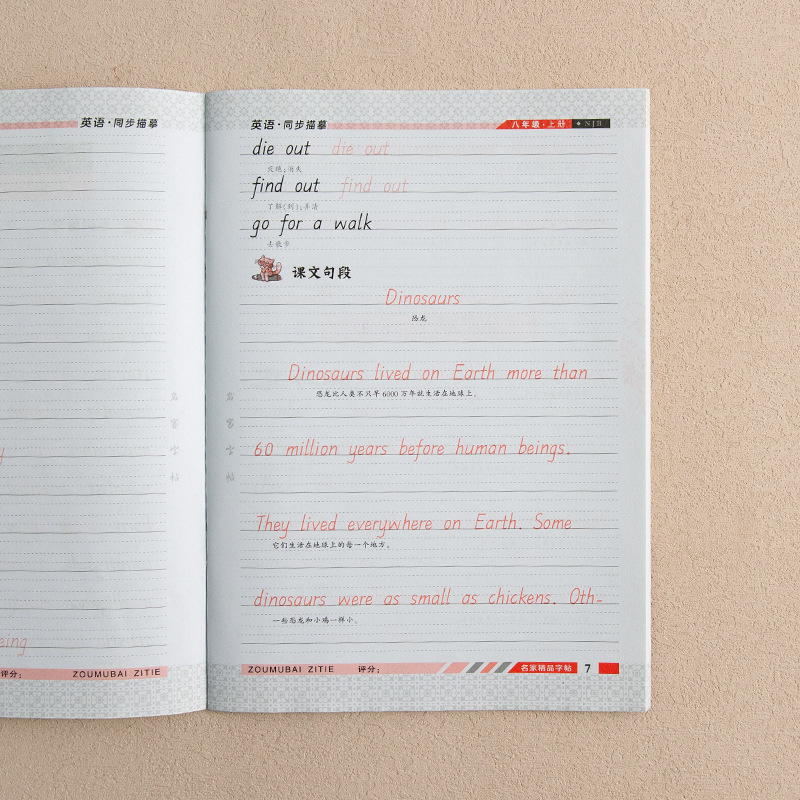 英语·同步描摹
名家字帖
eing
评分:
ZOUMUBAI ZITIE
英语·同步描摹
八年级·上册
NJB
die out die out
灭绝;消失
find out find out
了解(到);弄清
go for a walk
去散步
课文句段
Dinosaurs
恐龙
Dinosaurs lived on Earth more than
恐龙比人类不只早6000万年就生活在地球上。
60 million years before human beings.
They lived everywhere on Earth. Some
它们生活在地球上的每一个地方。
dinosaurs were as small as chickens. Oth-
一些恐龙和小鸡一样小。
名家字帖
ZOUMUBAI ZITIE
评分:
名家精品字帖
7